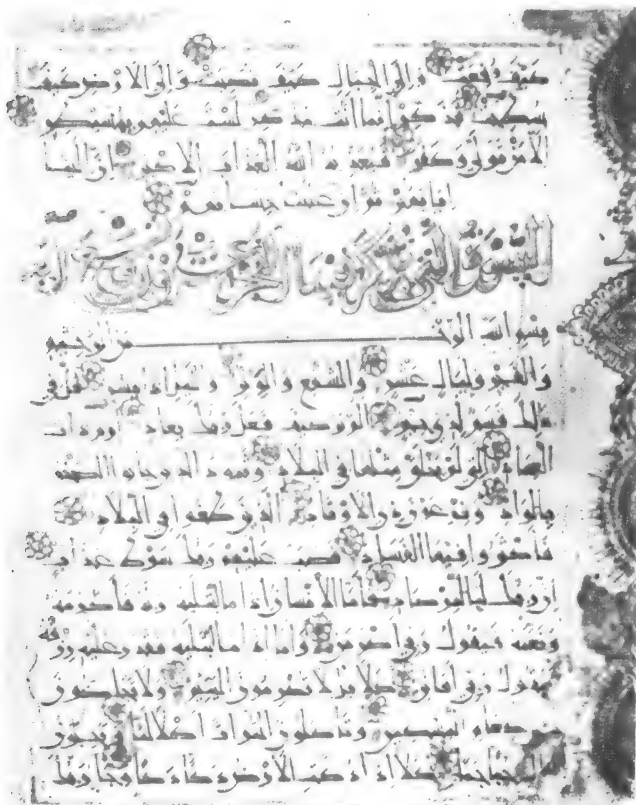 كيف رفعت والى الجبال كيف نصبت والى الارض كيف
سطحت فذكر انما انت مذكر لست عليهم بمصيطر
الا من تولى وكفر فيعذبه الله العذاب الاكبر ان الينا
ايابهم ثم ان علينا حسابهم
التي يذكر فيها الفجر
بسم الله الرحمن الرحيم
والفجر وليال عشر والشفع والوتر واليل اذا يسر هل في
ذلك قسم لذي حجر الم تر كيف فعل ربك بعاد ارم ذات
العماد التي لم يخلق مثلها في البلاد وثمود الذين جابوا الصخر
بالواد وفرعون ذي الاوتاد الذين طغوا في البلاد
فاكثروا فيها الفساد فصب عليهم ربك سوط عذاب
ان ربك لبالمرصاد فاما الانسان اذا ما ابتليه ربه فاكرمه
ونعمه فيقول ربي اكرمن واما اذا ما ابتليه فقدر عليه رزقه
فيقول ربي اهانن كلا بل لا تكرمون اليتيم ولا تحاضون
على طعام المسكين وتاكلون التراث اكلا لما وتحبون
المال حبا جما كلا اذا دكت الارض دكا دكا وجا ربك